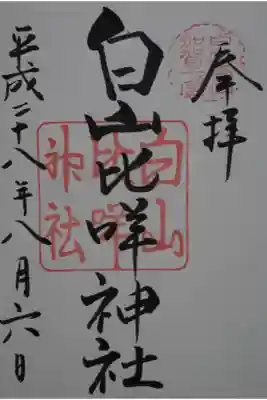 奉拝
白山比咩神社
平成二十八年八月六日
白山
比咩
神社